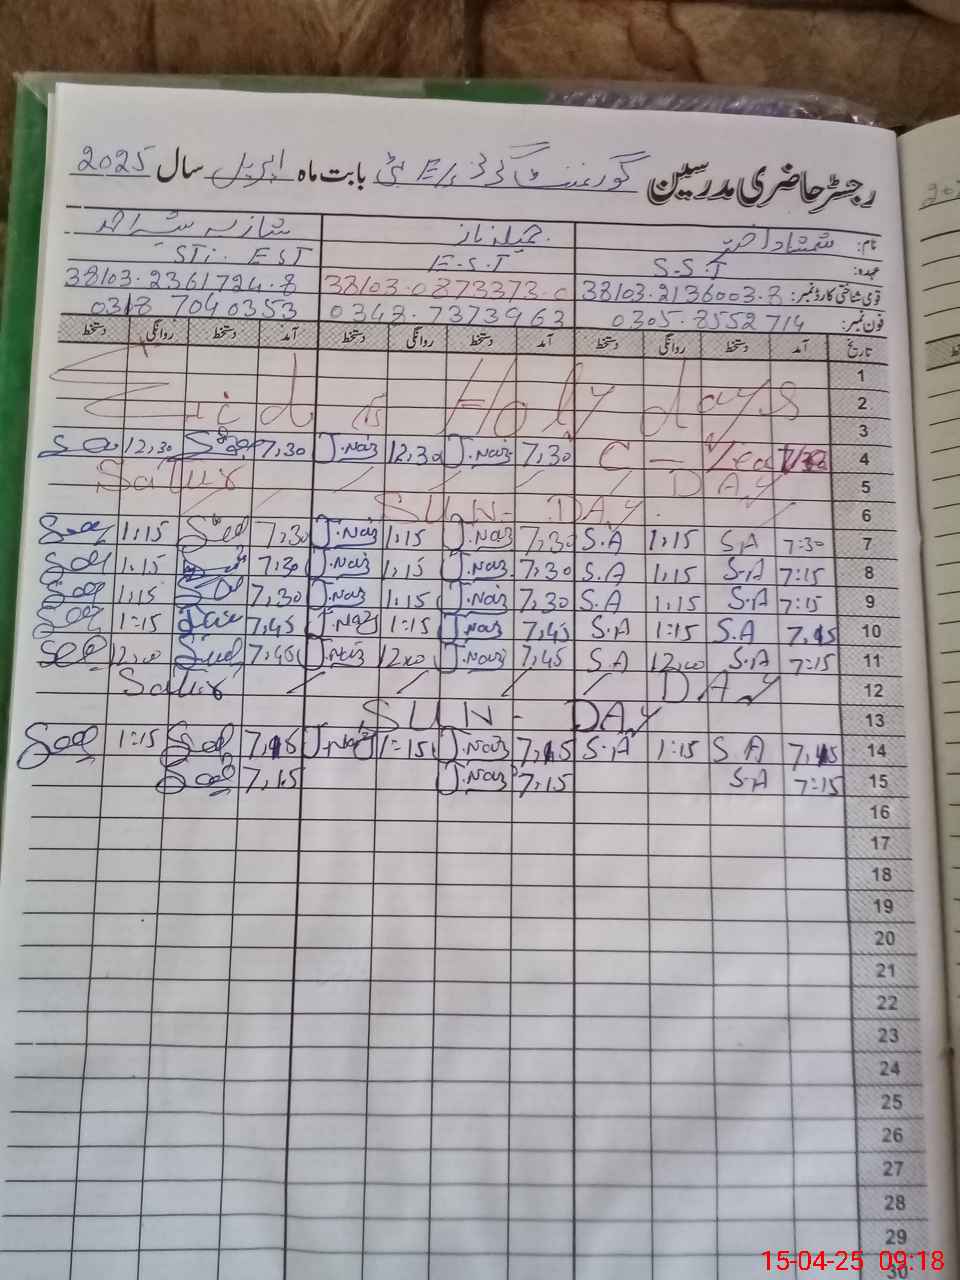 رجسٹر حاضری مدرسین گورنمنٹ گرلز E/S بابت ماہ اپریل سال 2025
نام: شمشاد اختر جمیلہ ناز شازیہ
عہدہ: S.S.T E.S.T STi. EST
قومی شناختی کارڈ نمبر: 38103.2136003.8 38103.0873373-0 38103.2361724.8
فون نمبر: 0305.8552714 0348.7373963 0318 7040353
تاریخ آمد دستخط روانگی دستخط آمد دستخط روانگی دستخط آمد دستخط روانگی دستخط
1
2 Eid Holy days
3
4 12,30 7,30 J.Naz 12,30 J.Naz 7,30 C -
5 Satur DAY
6 SUN - DAY
7 1:15 7,30 J.Naz 1,15 J.Naz 7,30 S.A 1,15 S.A 7:30
8 1:15 7,30 J.Naz 1,15 J.Naz 7,30 S.A 1,15 S.A 7:15
9 1,15 7,30 J.Naz 1,15 J.Naz 7,30 S.A 1,15 S.A 7:15
10 1:15 7,45 J.Naz 1:15 J.Naz 7,45 S.A 1:15 S.A
11 12,00 7,45 J.Naz 12,00 J.Naz 7,45 S.A 12,00 S.A 7:15
12 Satur DAY
13 SUN - DAY
14 1:15 J.Naz 1:15 J.Naz S.A 1:15 S.A
15 7,15 J.Naz 7,15 S.A 7:15
16
17
18
19
20
21
22
23
24
25
26
27
28
29
30
15-04-25 09:18